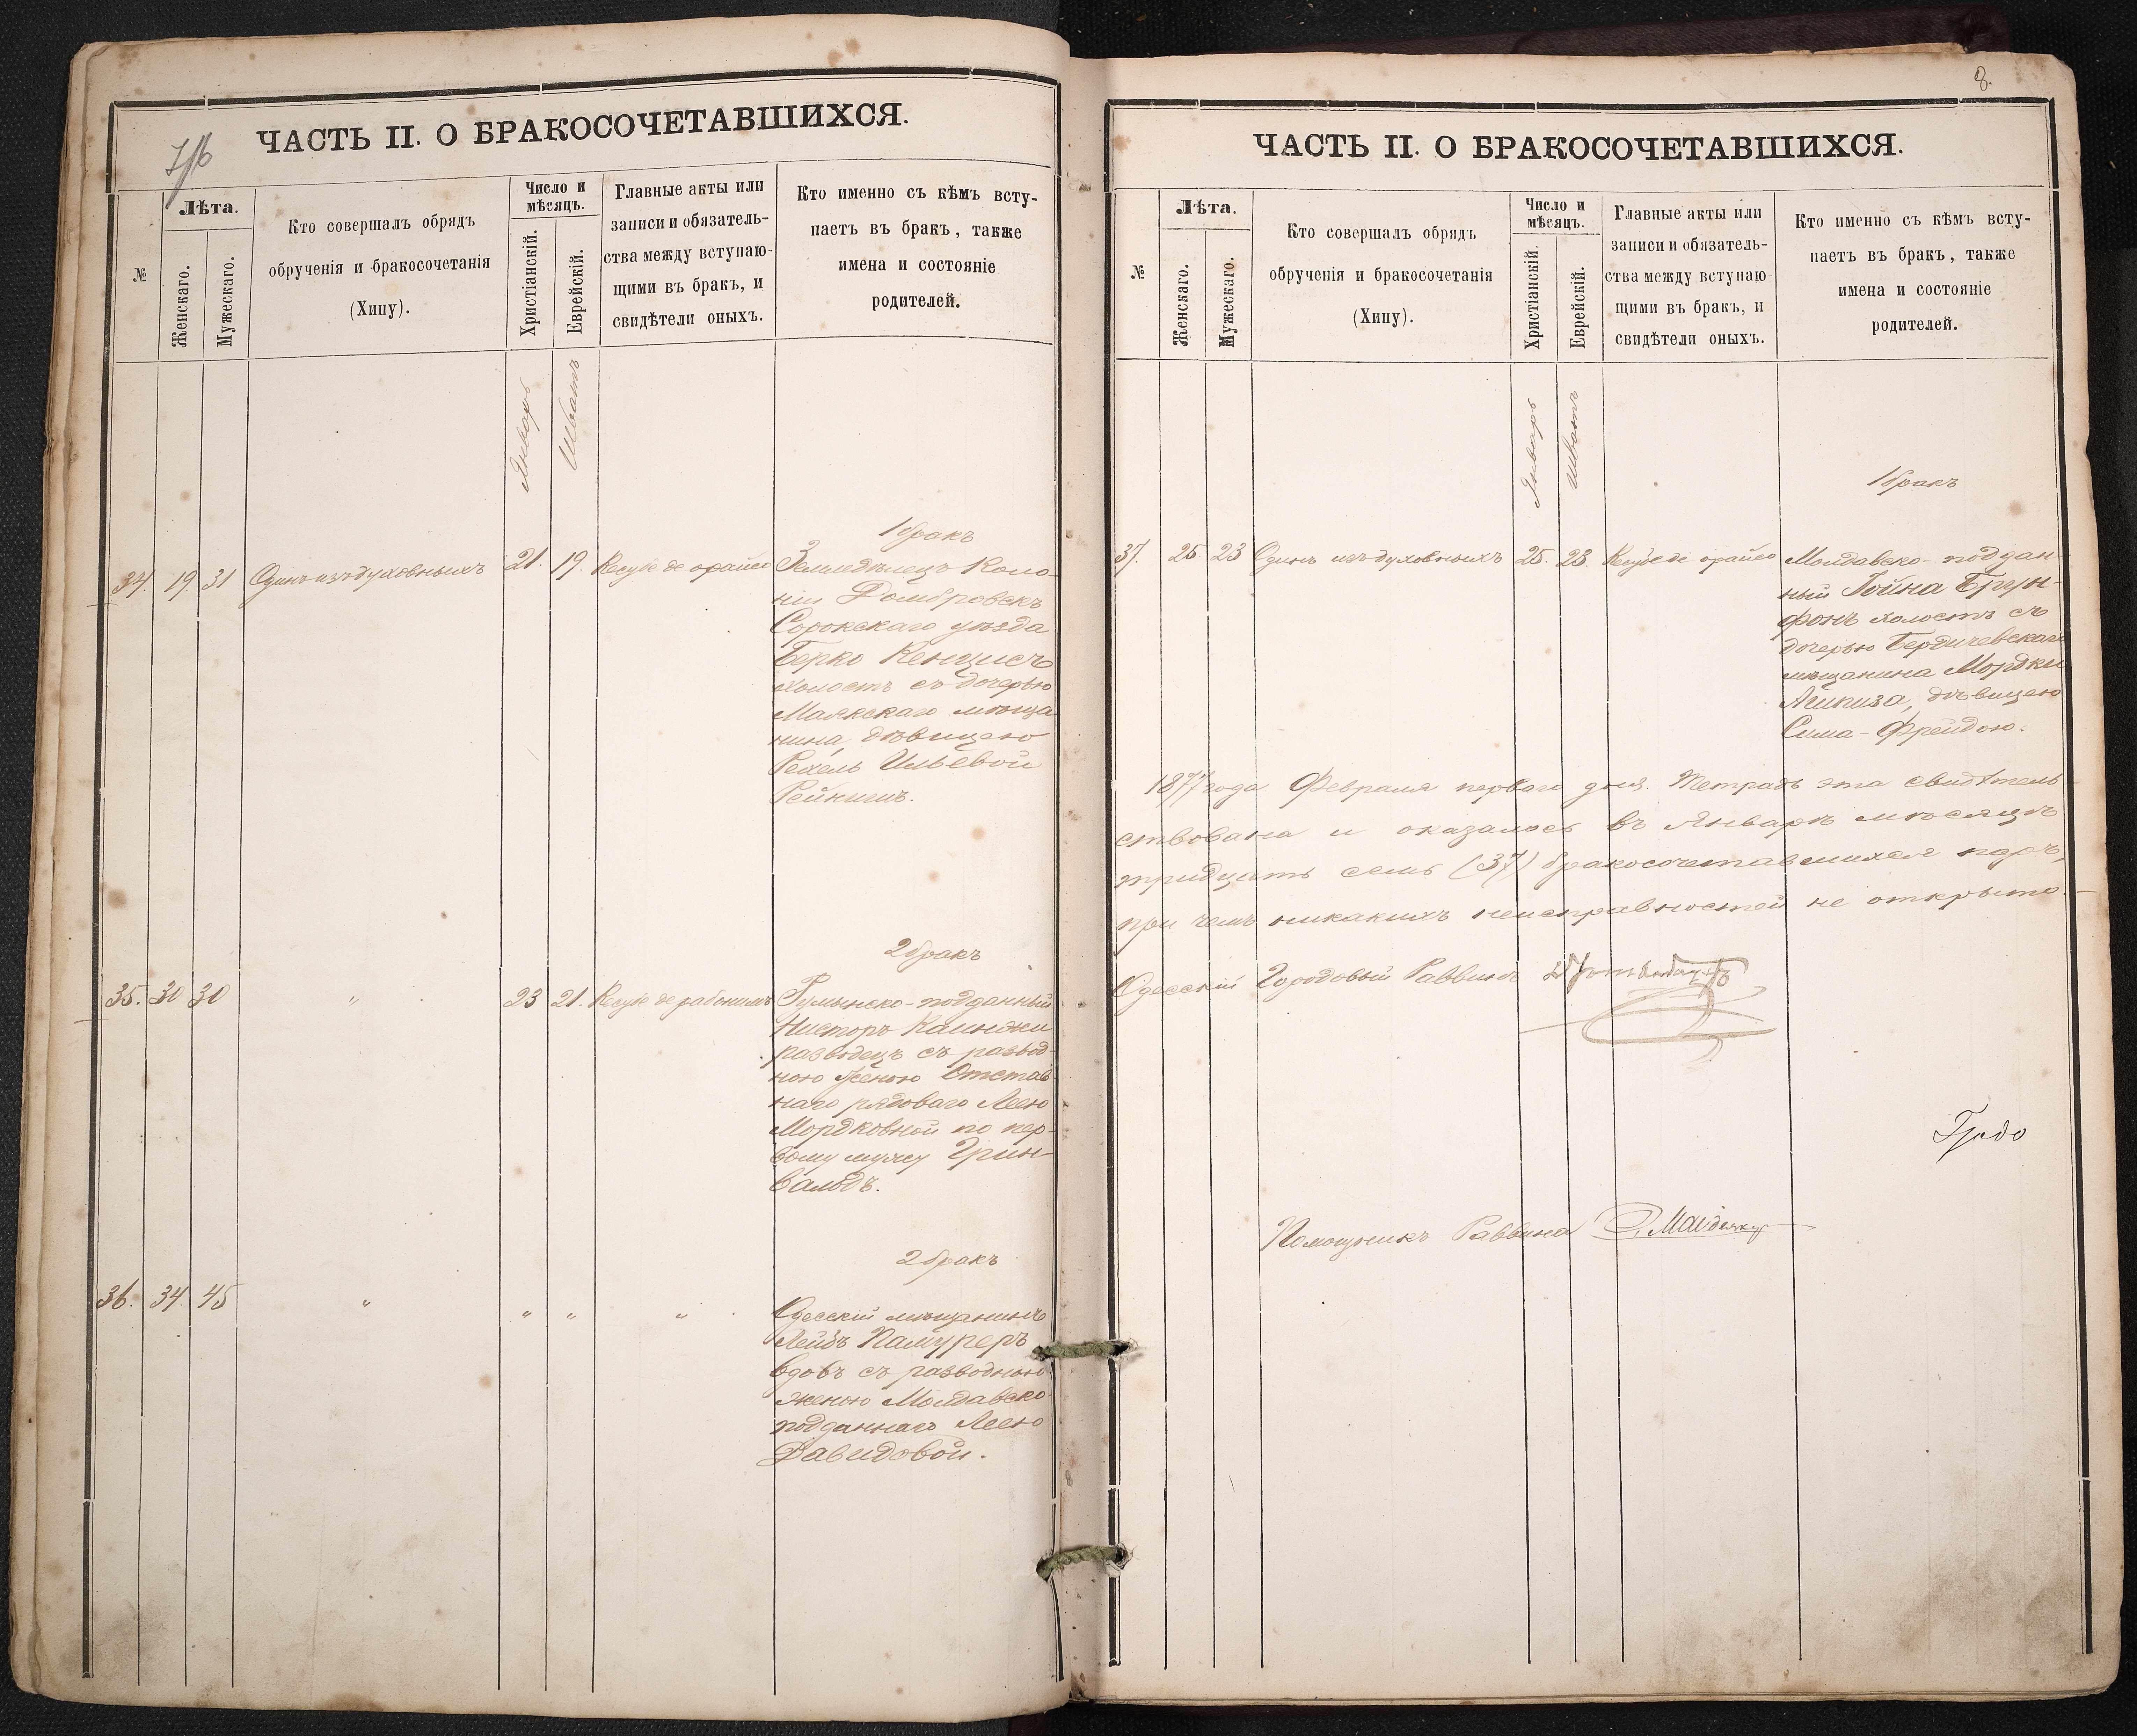 7/б
ЧАСТЬ II. О БРАКОСОЧЕТАВШИХСЯ.
№
Лѣта.
Женскаго.
Мужескаго.
Кто совершалъ обрядъ
обрученія и бракосочетанія
(Хипу).
Число и
мѣсяцъ.
Христіанскій.
Еврейскій.
Главные акты или
записи и обязатель-
ства между вступаю-
щими въ бракъ, и
свидѣтели оныхъ.
Кто именно съ кѣмъ всту-
паетъ въ бракъ, также
имена и состояніе
родителей.
Январь
Шватъ
1 бракъ
34. 19 31 Одинъ изъ духовныхъ 21. 19. Кесубе де орайсо Земледѣлецъ Коло-
ніи Домбровскъ
Сорокскаго уѣзда
Берко Кенцисъ
холостъ съ дочерью
Маякскаго мѣща
нина, дѣвицею
Рехель Ильевой
Рейнишъ.
2 бракъ
35. 30 30 " 23 21. Кесубе де рабонимъ Румынско-подданный
Нисторъ
разводецъ съ развод-
ною женою Отстав
наго рядоваго Леею
Мордковной по пер-
вому мужу Грин-
вальдъ.
2 бракъ
36. 34 45 " " " " Одесскій мѣщанинъ
Лейбъ
вдовъ съ разводною
женою Молдавско
подданнаго Леею
Давидовой.
8.
ЧАСТЬ II. О БРАКОСОЧЕТАВШИХСЯ.
№
Лѣта.
Женскаго.
Мужескаго.
Кто совершалъ обрядъ
обрученія и бракосочетанія
(Хипу).
Число и
мѣсяцъ.
Христіанскій.
Еврейскій.
Главные акты или
записи и обязатель-
ства между вступаю-
щими въ бракъ, и
свидѣтели оныхъ.
Кто именно съ кѣмъ всту-
паетъ въ бракъ, также
имена и состояніе
родителей.
Январь
Шватъ
1 бракъ
37. 25 23 Одинъ изъ духовныхъ 25. 23 Кесубе де орайсо Молдавско-поддан-
ный
холостъ съ
дочерью Бердичевскаго
мѣщанина Мордки
дѣвицею
Сима-Фрейдою.
1877 года Февраля перваго дня. Тетрадь эта свидѣтель-
ствована и оказалось въ Январѣ мѣсяцѣ
тридцать семь (37) бракосочетавшихся паръ,
при чемъ никакихъ неисправностей не открыто.
Одесскій Городовый Раввинъ
Помощникъ Раввина